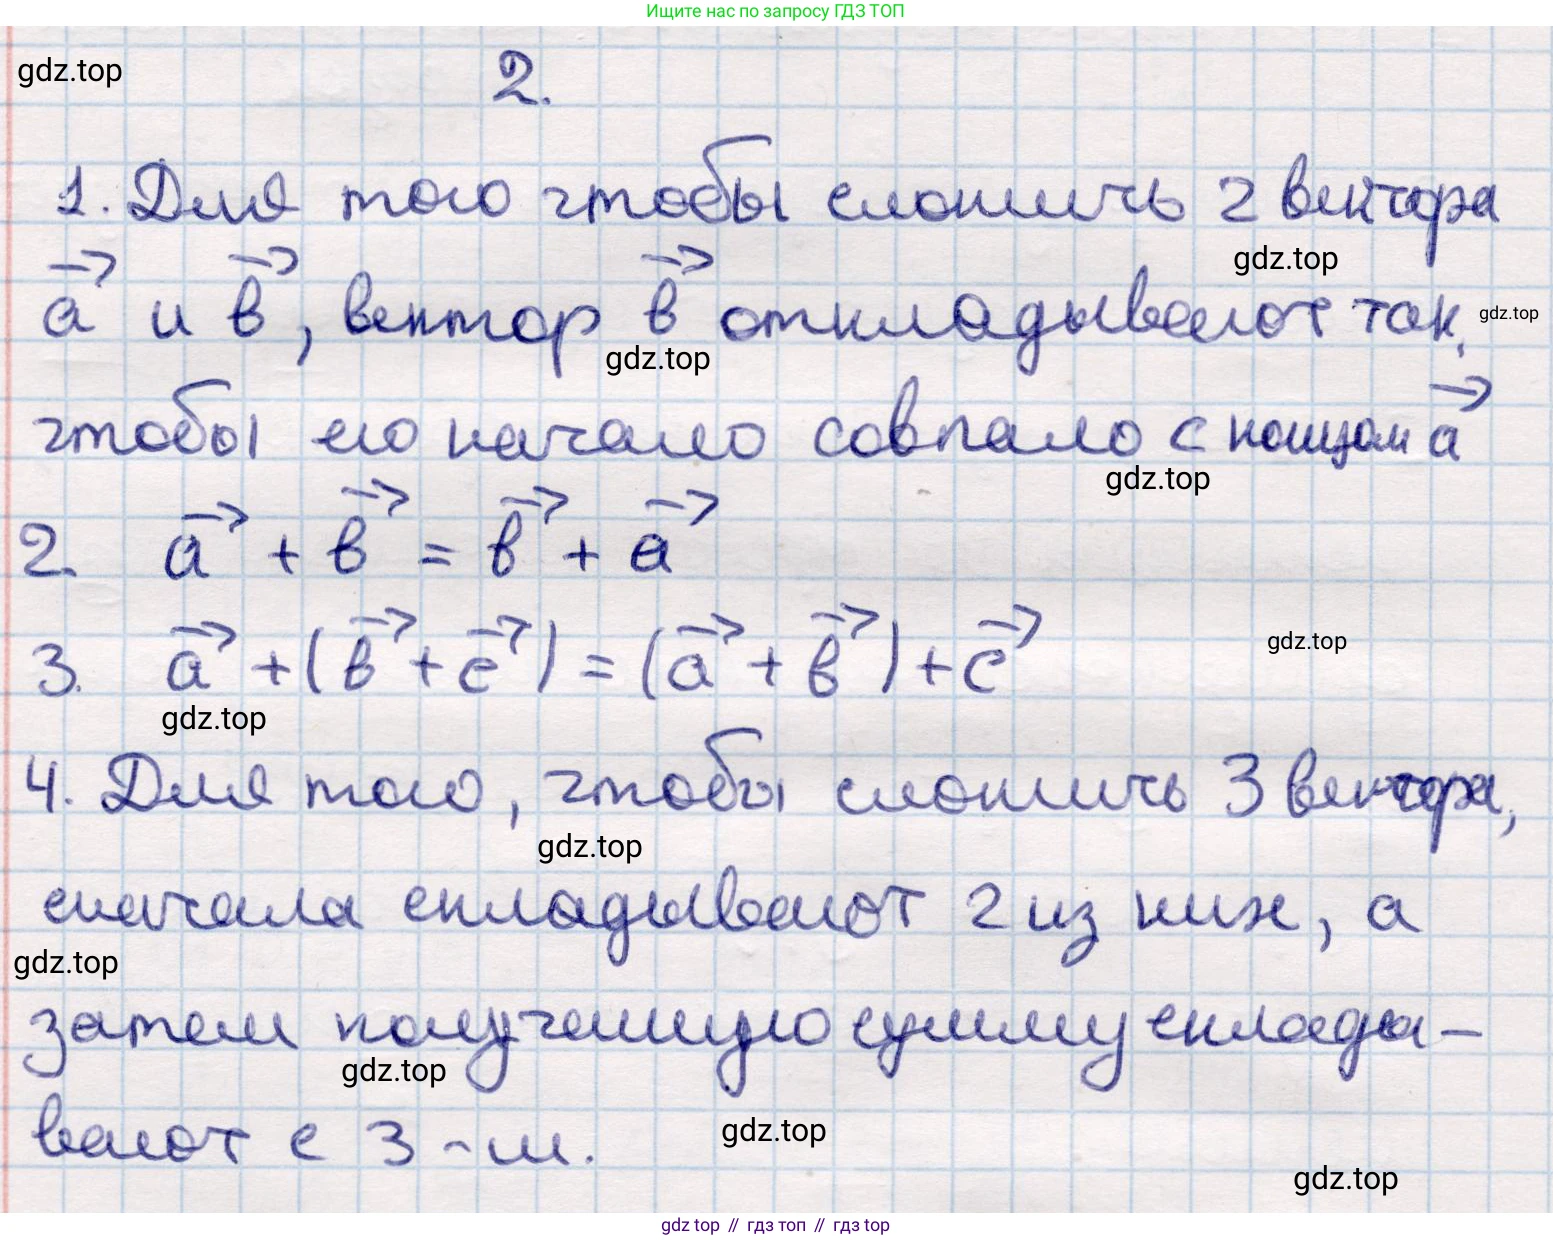 Ищите нас по запросу ГДЗ ТОП
gdz.top
2.
1. Для того чтобы сложить 2 вектора
gdz.top
a⃗ и b⃗, вектор b⃗ откладывают так,
gdz.top
gdz.top
чтобы его начало совпало с концом a⃗
gdz.top
2. a⃗ + b⃗ = b⃗ + a⃗
3. a⃗ + (b⃗ + c⃗) = (a⃗ + b⃗) + c⃗
gdz.top
gdz.top
4. Для того, чтобы сложить 3 вектора,
gdz.top
сначала складывают 2 из них, а
gdz.top
затем полученную сумму склады-
gdz.top
вают с 3-м.
gdz.top
gdz.top
gdz top // гдз топ // гдз top